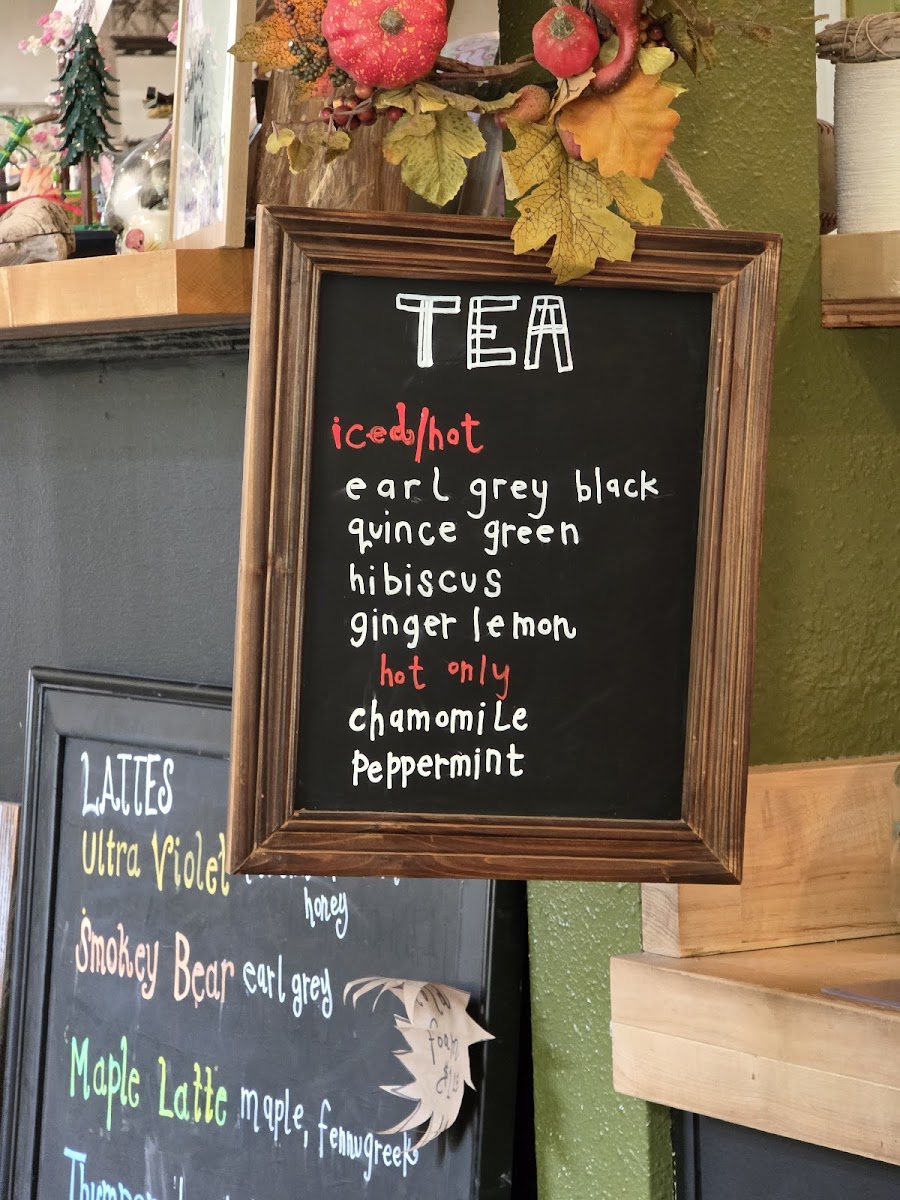 TEA
iced/hot
earl grey black
quince green
hibiscus
ginger lemon
hot only
chamomile
peppermint
LATTES
Ultra Violet
honey
Smokey Bear earl grey
Maple Latte maple, fennugreek
foam